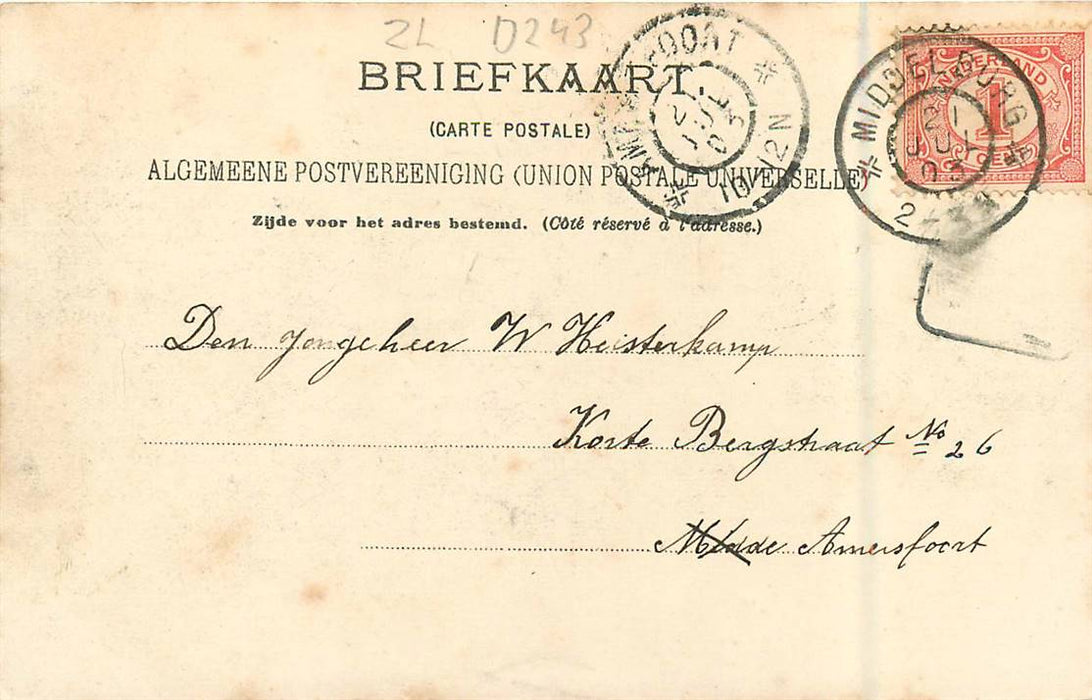 ZL D243
BRIEFKAART
(CARTE POSTALE)
ALGEMEENE POSTVEREENIGING (UNION POSTALE UNIVERSELLE)
Zijde voor het adres bestemd. (Côté réservé à l'adresse.)
AMERSFOORT
21
JUL
03
10-12N
NEDERLAND
1
CENT
MIDDELBURG
21
JUL
03
2-3N
Den Jongeheer W Heisterkamp
Korte Bergstraat No 26
Midde Amersfoort